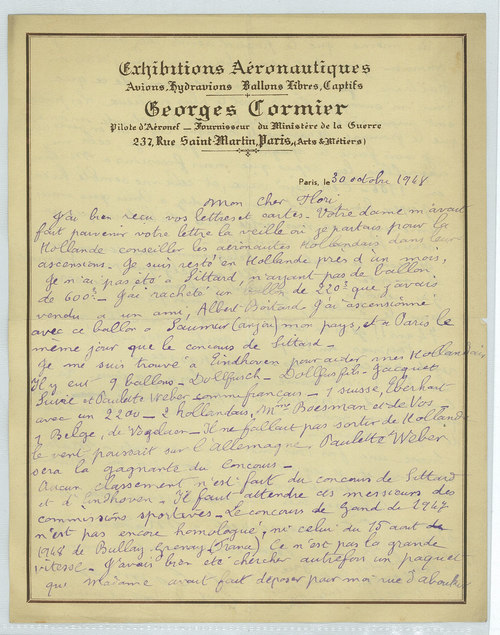 Exhibitions Aéronautiques
Avions, Hydravions Ballons Libres, Captifs
Georges Cormier
Pilote d'Aéronef — Fournisseur du Ministère de la Guerre
237, Rue Saint-Martin, Paris, (Arts & Métiers)
Paris, le 30 octobre 1948
Mon cher Flori
J'ai bien reçu vos lettres et cartes. Votre dame m'avait
fait parvenir votre lettre la veille où je partais pour la
Hollande conseiller les aéronautes Hollandais dans leur
ascensions. Je suis resté en Hollande près d'un mois,
Je n'ai pas été à Sittard, n'ayant pas de ballon
de 600m3 - J'ai racheté un ballon de 220m3 que j'avais
vendu à un ami, Albert Boitard J'ai ascensionné
avec ce ballon à Saumur (anjou) mon pays, et à Paris le
même jour que le concours de Sittard -
Je me suis trouvé à Eindhoven pour aider mes Hollandais
Il y eut 9 ballons - Dollfusch - Dollfus fils - Jacquet
et Paulette Weber comme français - 1 suisse, Eberhart
avec un 2200 - 2 hollandais, Mme Boesman et de Vos -
1 Belge, de - Il ne fallait pas sortir de Hollande
le vent poussait sur l'allemagne, Paulette Weber
sera la gagnante du Concours -
Aucun classement n'est fait du concours de Sittard
et d'Eindhoven - Il faut attendre ces messieurs des
commissions sportives - Le concours de Gand de 1947
n'est pas encore homologué, ni celui du 15 aout de
1948 de Bullay. Epernay (France) Ce n'est pas la grande
vitesse - J'avais bien été chercher autrefois un paquet
que Madame avait fait déposer pour moi rue d'aboukir